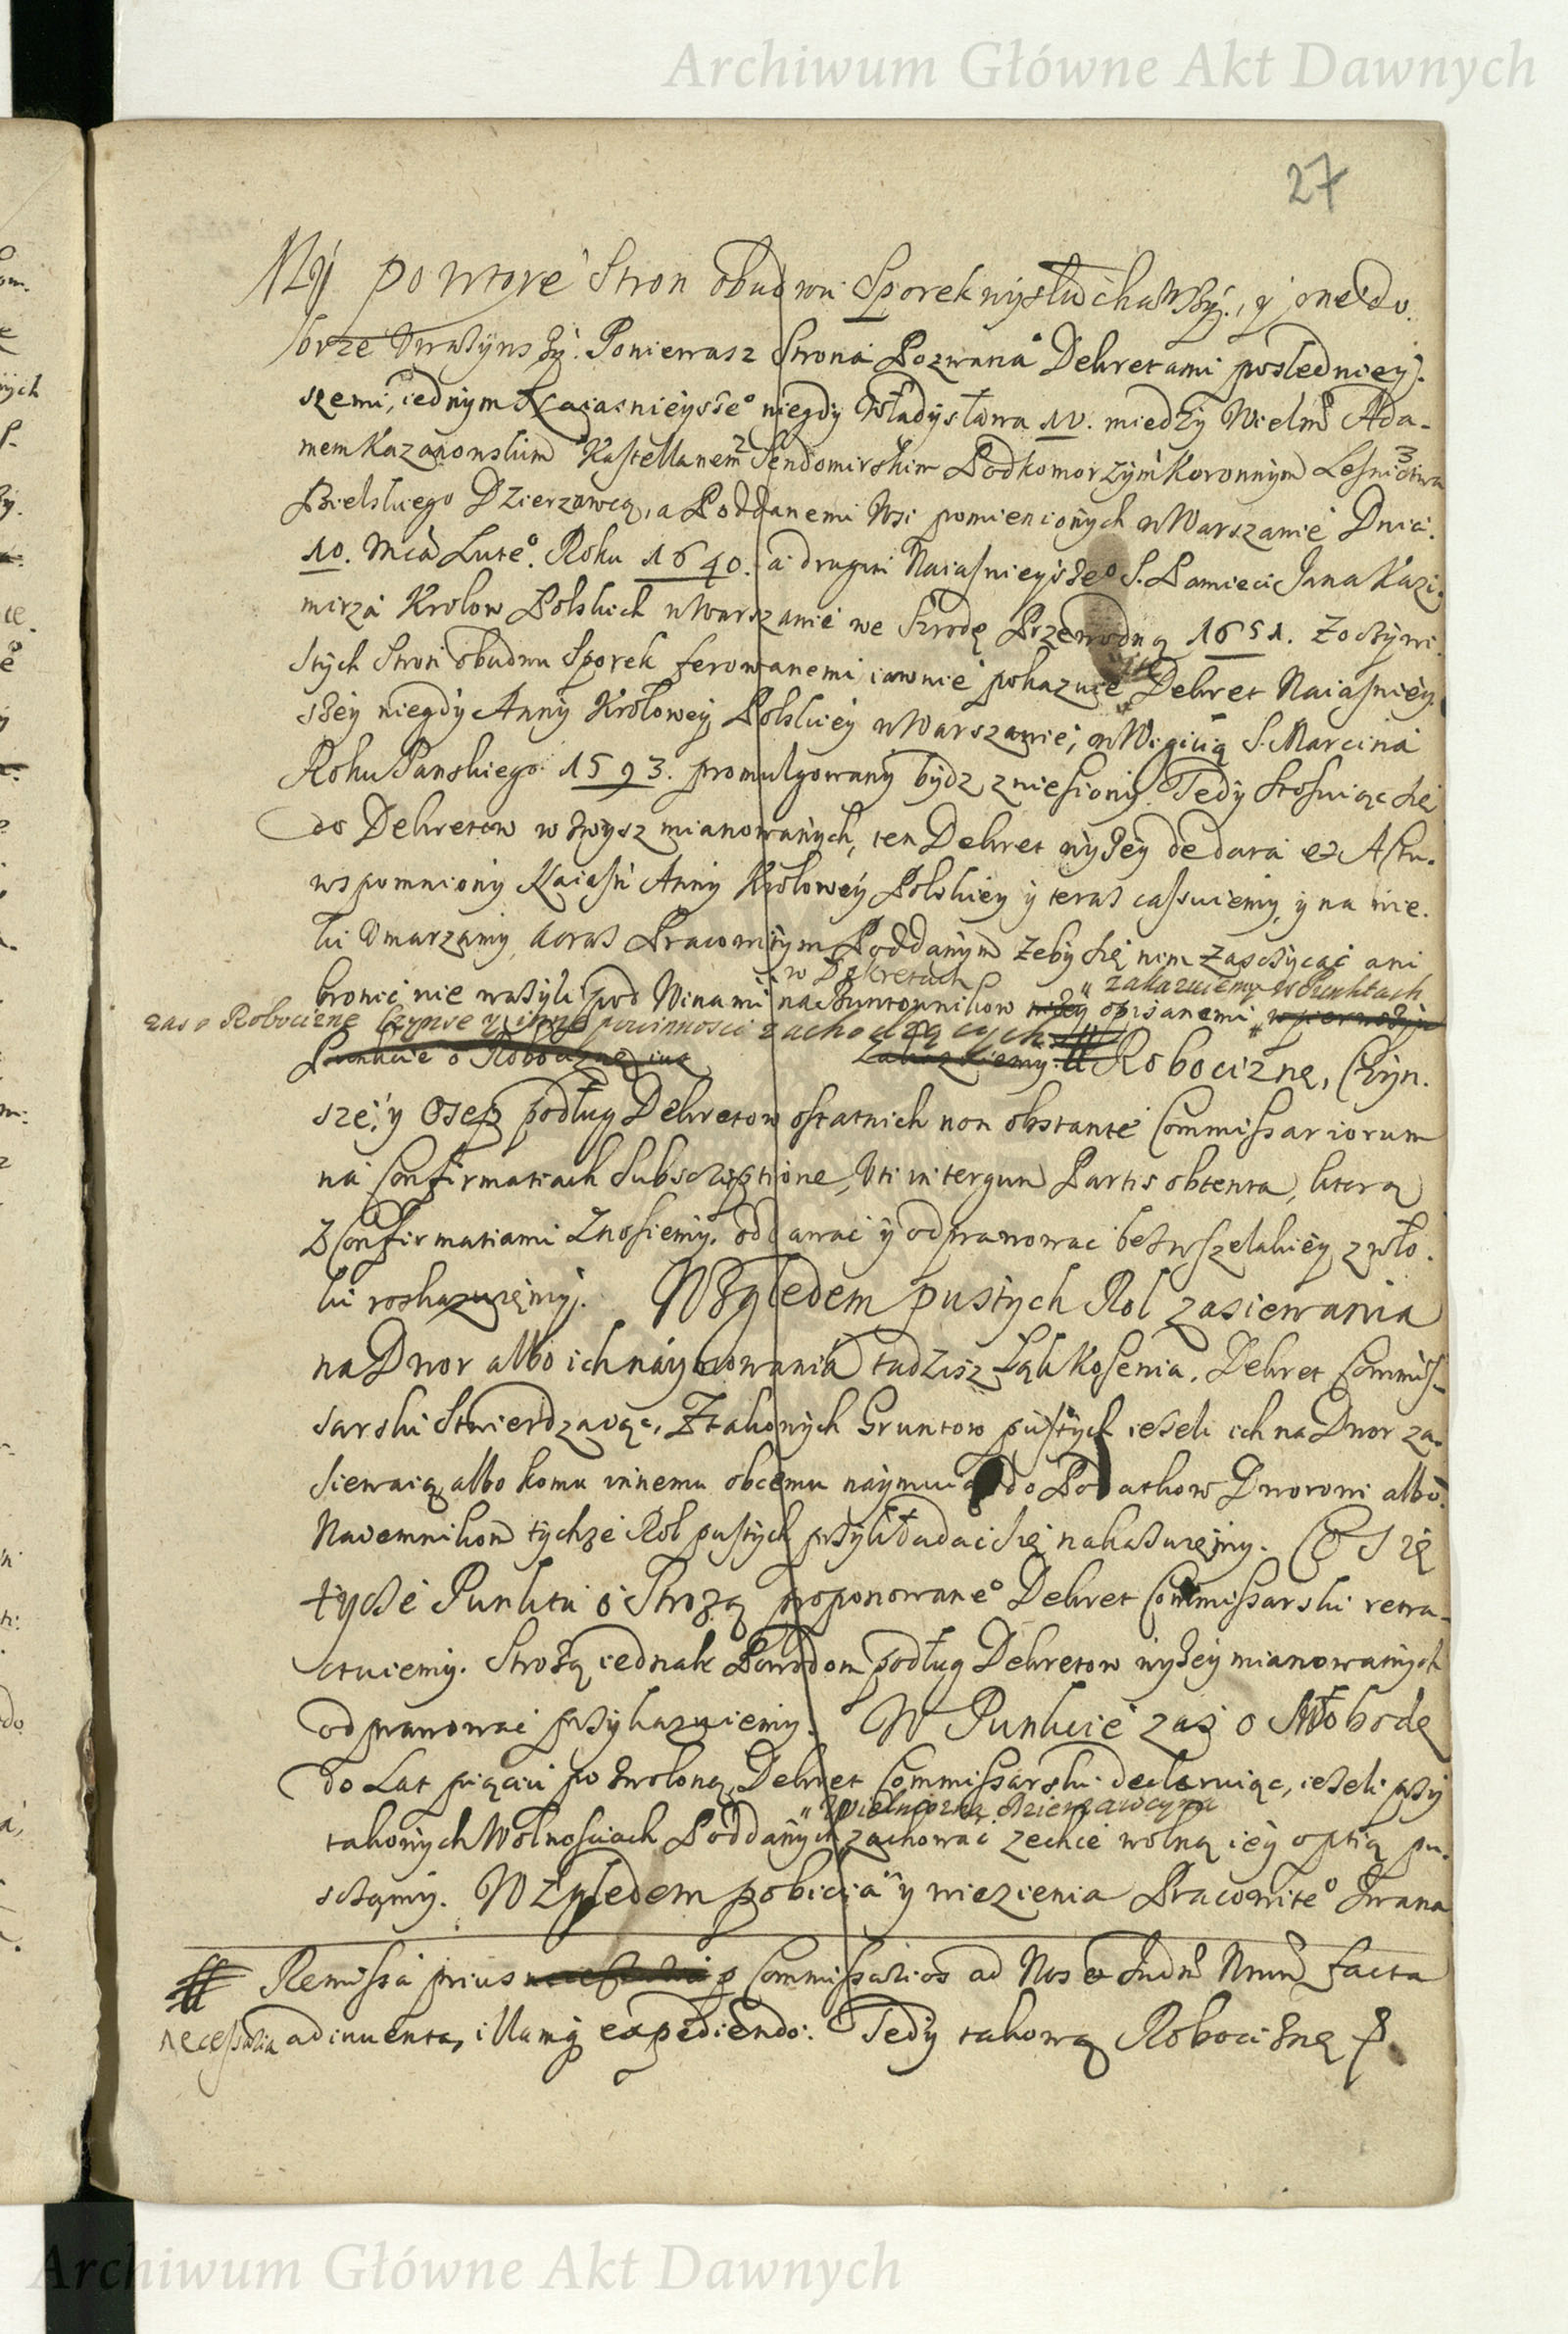 Archiwum Główne Akt Dawnych
27
My powtore Stron obudwu Sporek wysłuchawszy, y one do
brze uważywszy. Poniewasz Strona Pozwana Dekretami posledniey
szemi, iednym Naiasnieysze° niegdy Władysława IV. miedzy Wielm Ada-
mem Kazanowskim Kasztellanem Sendomirskim Podkomorzym Koronnym Lesnictwa
Bielskiego Dzierzawcą, a Poddanemi Wsi pomienionych w Warszawie Dnia
10. Mca Lute°. Roku 1640. a drugim Naiasnieysze° S. Pamieci Jana Kazi
mirza Krolow Polskich w Warszawie we Szrodę Przewodną 1651. Zoczywi
stych Stron obudwu Sporek ferowanemi iawnie pokazuie Dekret Naiasniey
szey niegdy Anny Krolowey Polskiey w Warszawie, w Wigilią S. Marcina
Roku Panskiego 1593. promulgowany bydz zniesiony. Tedy stosuiąc się
do Dekretow wzwysz mianowanych, ten Dekret wyżey de data et Actu
wspomniony Naiasn Anny Krolowey Polskiey y teras cassuiemy y na wie.
ki umarzamy, a oras Pracowitym Poddanym zeby się nim zasczycać ani
w Dekretach zakazuiemy w Punktach
bronić nie ważyli pod Winami na Buntownikow niżey opisanemi w pierwszym
zas o Robociznę Czynsze y inne powinnosci zachodzących
Punkcie o Robociznę iuz zakazuiemy. # Robociznę, Czyn.
sze, y Osep podług Dekretow ostatnich non obstante Commissariorum
na Confirmatiach Subscriptione, Uti in tergum Partis obtenta, ktorą
z Confirmatiami Znosiemy. oddawać y odprawować bez wszelakiey zwło.
ki roskazuięmy. Względem pustych Rol zasiewania
na Dwor albo ich naymowania tudzisz Łąk Kosenia. Dekret Commis-
sarski Stwierdzaiąc, Z takowych Gruntow pustych ieżeli ich na Dwor za-
siewaią albo komu innemu obcemu naymuią do Podatkow Dworowi albo
Naiemnikom tychze Rol pustych przykładać się nakazuięmy. Co się
tycze Punktu o Strożą proponowane° Dekret Commissarski retra-
ctuiemy. Strożą iednak Powodom podług Dekretow wyżey mianowanych
odprawować przykazuiemy. W Punkcie zaś o Słobodę
do Lat pięciu pozwoloną Dekret Commissarski declaruiąc, ieżeli przy
Wielmożna Dzierzawczyna
takowych Wolnosciach Poddanych zachować zechce wolną iey optią pu-
sczamy. Względem pobicia y więzienia Pracowite° Iwana
# Remissa prius p Commissarios ad Nos et Iudm Nrum facta
necessaria adinuenta, illamq expediendo. Tedy takową Robociznę
Archiwum Główne Akt Dawnych